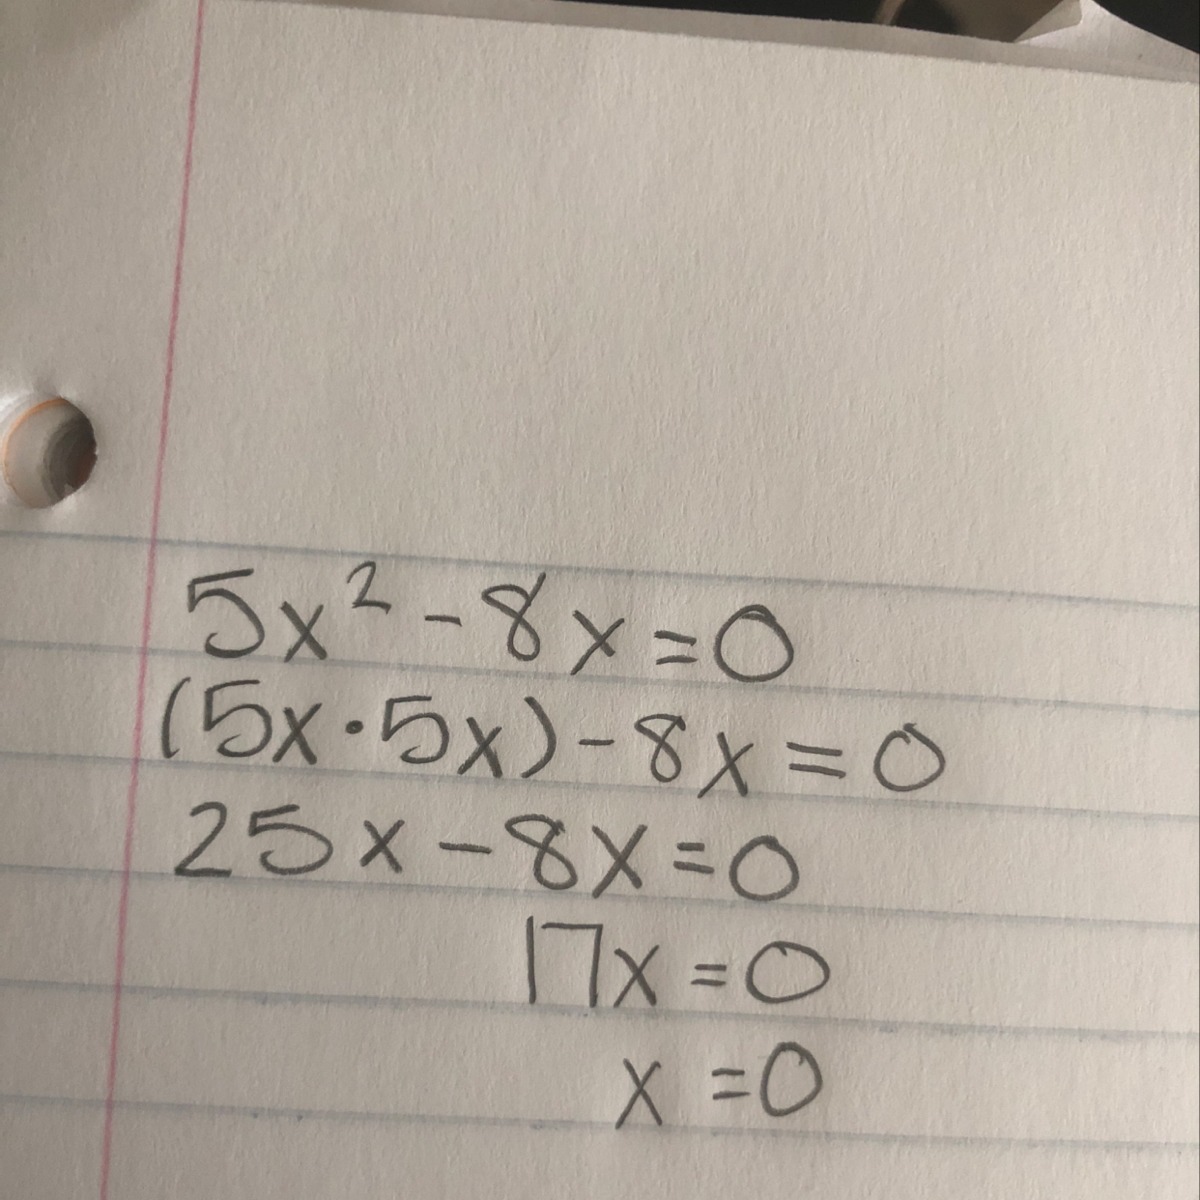 5x² - 8x = 0
(5x · 5x) - 8x = 0
25x - 8x = 0
17x = 0
x = 0